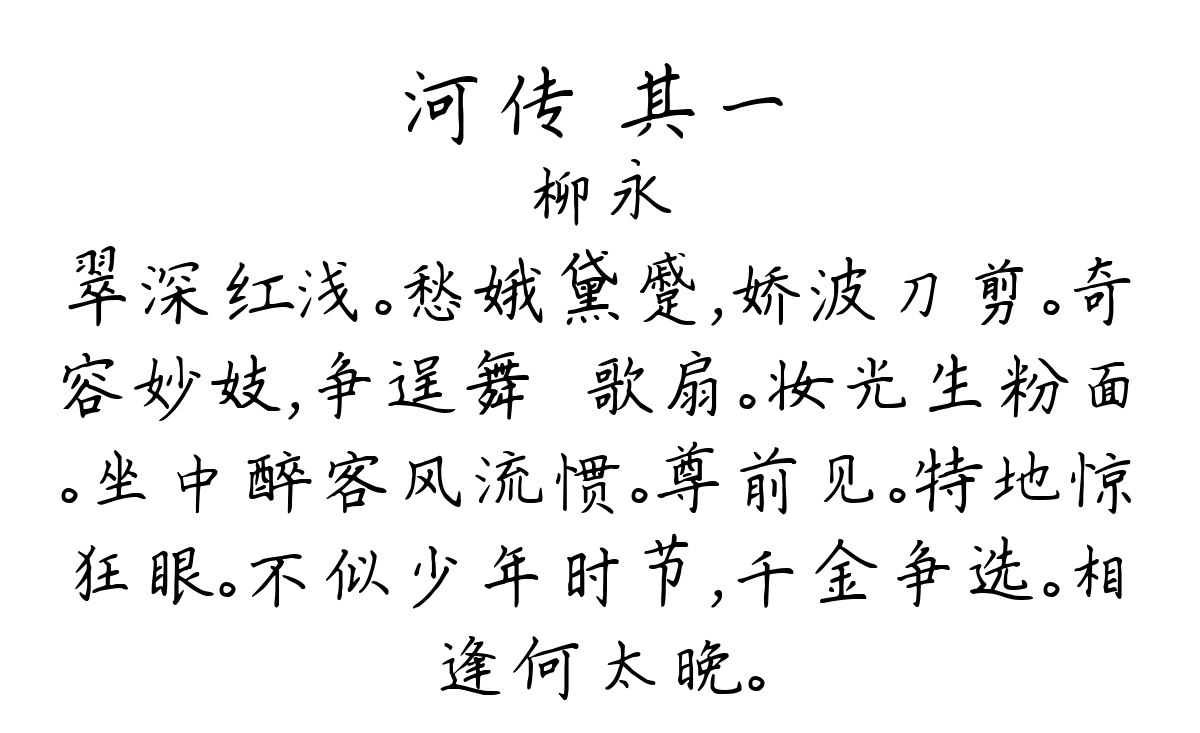 河传 其一
柳永
翠深红浅。愁娥黛蹙,娇波刀剪。奇
容妙妓,争逞舞 歌扇。妆光生粉面
。坐中醉客风流惯。尊前见。特地惊
狂眼。不似少年时节,千金争选。相
逢何太晚。